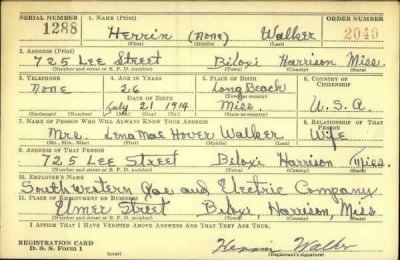 SERIAL NUMBER 1. NAME (Print) ORDER NUMBER
1288 Herrin (None) Walker 2040
(First) (Middle) (Last)
2. ADDRESS (Print)
725 Lee Street Biloxi Harrison Miss.
(Number and street or R. F. D. number) (Town) (County) (State)
3. TELEPHONE 4. AGE IN YEARS 5. PLACE OF BIRTH 6. COUNTRY OF CITIZENSHIP
None 26 Long Beach
DATE OF BIRTH (Town or county)
July 21 1914 Miss. U.S.A.
(Exchange) (Number) (Mo.) (Day) (Yr.) (State or country)
7. NAME OF PERSON WHO WILL ALWAYS KNOW YOUR ADDRESS 8. RELATIONSHIP OF THAT PERSON
Mrs. Lena Mae Hover Walker Wife
(Mr., Mrs., Miss) (First) (Middle) (Last)
9. ADDRESS OF THAT PERSON
725 Lee Street Biloxi Harrison Miss.
(Number and street or R. F. D. number) (Town) (County) (State)
10. EMPLOYER'S NAME
Southwestern Gas and Electric Company
11. PLACE OF EMPLOYMENT OR BUSINESS
Elmer Street Biloxi, Harrison, Miss
(Number and street or R. F. D. number) (Town) (County) (State)
I AFFIRM THAT I HAVE VERIFIED ABOVE ANSWERS AND THAT THEY ARE TRUE.
REGISTRATION CARD
D. S. S. Form 1 Herrin Walker
(Registrant's signature)